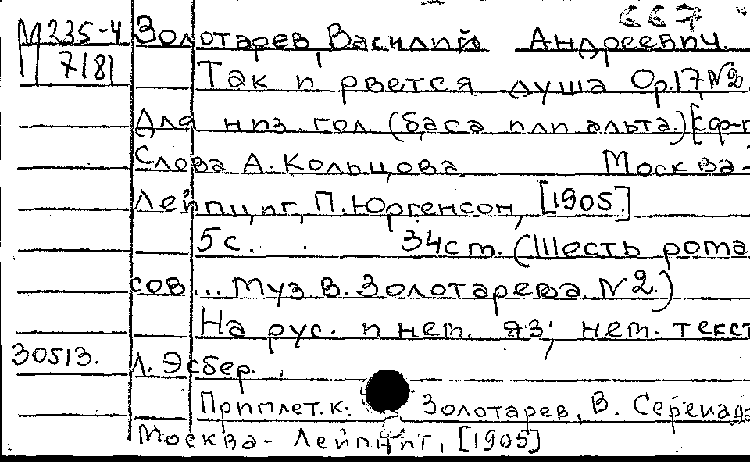 667
М235-4 Золотарев, Василий Андреевич.
7181 Так и рвется душа Ор.17, №2.
Для низ. гол. (баса или альта.) [ф-п
Слова А. Кольцова Москва-
Лейпциг, П. Юргенсон, [1905]
5 с. 34 ст. (Шесть рома
сов ... муз. В. Золотарева. №2.)
На рус. и нем. яз; нем. текст
30513. Л. Эсбер.
Приплет. к: Золотарев, В. Серенада
Москва - Лейпциг, [1905]